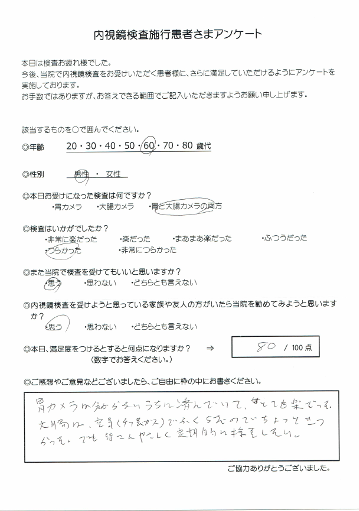 内視鏡検査施行患者さまアンケート
本日は検査お疲れ様でした。
今後、当院で内視鏡検査をお受けいただく患者様に、さらに満足していただけるようにアンケートを
実施しております。
お手数ではありますが、お答えできる範囲でご記入いただきますようお願い申し上げます。
該当するものを○で囲んでください。
◎年齢 20・30・40・50・60・70・80 歳代
◎性別 男性 ・ 女性
◎本日お受けになった検査は何ですか？
・胃カメラ ・大腸カメラ ・胃と大腸カメラの両方
◎検査はいかがでしたか？
・非常に楽だった ・楽だった ・まあまあ楽だった ・ふつうだった
・つらかった ・非常につらかった
◎また当院で検査を受けてもいいと思いますか？
・思う ・思わない ・どちらとも言えない
◎内視鏡検査を受けようと思っている家族や友人の方がいたら当院を勧めてみようと思います
か？
・思う ・思わない ・どちらとも言えない
◎本日、満足度をつけるとすると何点になりますか？ ⇒ 80 / 100 点
（数字でお答えください。）
◎ご感想やご意見などございましたら、ご自由に枠の中にお書きください。
胃カメラは分からないうちに済んでいて、とても楽でした。
大腸は、
ご協力ありがとうございました。